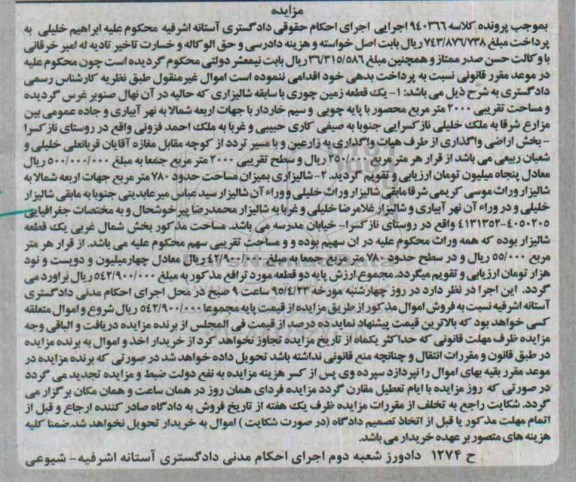 مزایده
بموجب پرونده کلاسه ۹۴۰۳۶۶ اجرایی اجرای احکام حقوقی دادگستری آستانه اشرفیه محکوم علیه ابراهیم خلیلی به
پرداخت مبلغ ۷۴۳/۸۷۶/۷۳۸ ریال بابت اصل خواسته و هزینه دادرسی و حق الوکاله و خسارت تاخیر تادیه له امیر خرقانی
با وکالت حسن صدر ممتاز و همچنین مبلغ ۳۶/۳۱۵/۵۸۶ ریال بابت نیمعشر دولتی محکوم گردیده است چون محکوم علیه
در موعد مقرر قانونی نسبت به پرداخت بدهی خود اقدامی ننموده است اموال غیرمنقول طبق نظریه کارشناس رسمی
دادگستری به شرح ذیل می باشد: ۱- یک قطعه زمین چوری با سابقه شالیزاری که حالیه در آن نهال صنوبر غرس گردیده
و مساحت تقریبی ۲۰۰۰ متر مربع محصور با پایه چوبی و سیم خاردار با جهات اربعه شمالا به نهر آبیاری و جاده عمومی بین
مزارع شرقا به ملک خلیلی نازکسرایی جنوبا به صیفی کاری حبیبی و غربا به ملک احمد فزونی واقع در روستای نازکسرا
- بخش اراضی واگذاری از طرف هیات واگذاری به زارعین و با مسیر تردد از کوچه مقابل مغازه آقایان قربانعلی خلیلی و
شعبان ربیعی می باشد از قرار هر متر مربع ۲۵۰/۰۰۰ ریال و سطح تقریبی ۲۰۰۰ متر مربع جمعا به مبلغ ۵۰۰/۰۰۰/۰۰۰ ریال
معادل پنجاه میلیون تومان ارزیابی و تقویم گردید. ۲- شالیزاری بمیزان مساحت حدود ۷۸۰ متر مربع جهات اربعه شمالا به
شالیزار وراث موسی کریمی شرقا مابقی شالیزار وراث خلیلی و وراء آن شالیزار سید عباس میرعابدینی جنوبا به مابقی شالیزار
خلیلی و در وراء آن نهر آبیاری و شالیزار غلامرضا خلیلی و غربا به شالیزار محمدرضا پیرخوشحال و به مختصات جغرافیایی
۴۱۳۱۳۵۲-۴۰۵۰۲۰۵ واقع در روستای نازکسرا - خیابان مدرسه می باشد. مساحت مذکور بخش شمال غربی یک قطعه
شالیزار بوده که همه وراث محکوم علیه در آن سهیم بوده و و مساحت تقریبی سهم محکوم علیه می باشد. از قرار هر متر
مربع ۵۵/۰۰۰ ریال و در سطح حدود ۷۸۰ متر مربع جمعا به مبلغ ۴۲/۹۰۰/۰۰۰ ریال معادل چهارمیلیون و دویست و نود
هزار تومان ارزیابی و تقویم میگردد. مجموع ارزش پایه دو قطعه مورد ترافع مذکور به مبلغ ۵۴۲/۹۰۰/۰۰۰ ریال براورد می
گردد. این اجرا در نظر دارد در روز چهارشنبه مورخه ۹۵/۴/۲۳ ساعت ۹ صبح در محل اجرای احکام مدنی دادگستری
آستانه اشرفیه نسبت به فروش اموال مذکور از طریق مزایده از قیمت پایه مجموعا ۵۴۲/۹۰۰/۰۰۰ ریال شروع و اموال متعلقه
کسی خواهد بود که بالاترین قیمت پیشنهاد نماید ده درصد از قیمت فی المجلس از برنده مزایده دریافت و الباقی وجه
مزایده ظرف مهلت قانونی که حداکثر یکماه از تاریخ مزایده تجاوز نخواهد کرد از خریدار اخذ و اموال به برنده مزایده
در طبق قانون و مقررات انتقال و چنانچه منع قانونی نداشته باشد تحویل داده خواهد شد در صورتی که برنده مزایده در
موعد مقرر بقیه بهای اموال را نپردازد سپرده وی پس از کسر هزینه مزایده به نفع دولت ضبط و مزایده تجدید می گردد
در صورتی که روز مزایده با ایام تعطیل مقارن گردد مزایده فردای همان روز در همان ساعت و همان مکان برگزار می
گردد. شکایت راجع به تخلف از مقررات مزایده ظرف یک هفته از تاریخ فروش به دادگاه صادر کننده ارجاع و قبل از
اتمام مهلت مذکور یا قبل از اتخاذ تصمیم دادگاه (در صورت شکایت) اموال به خریدار تحویل نخواهد شد.ضمنا کلیه
هزینه های متصور بر عهده خریدار می باشد.
ح ۱۲۷۴ دادورز شعبه دوم اجرای احکام مدنی دادگستری آستانه اشرفیه - شیوعی